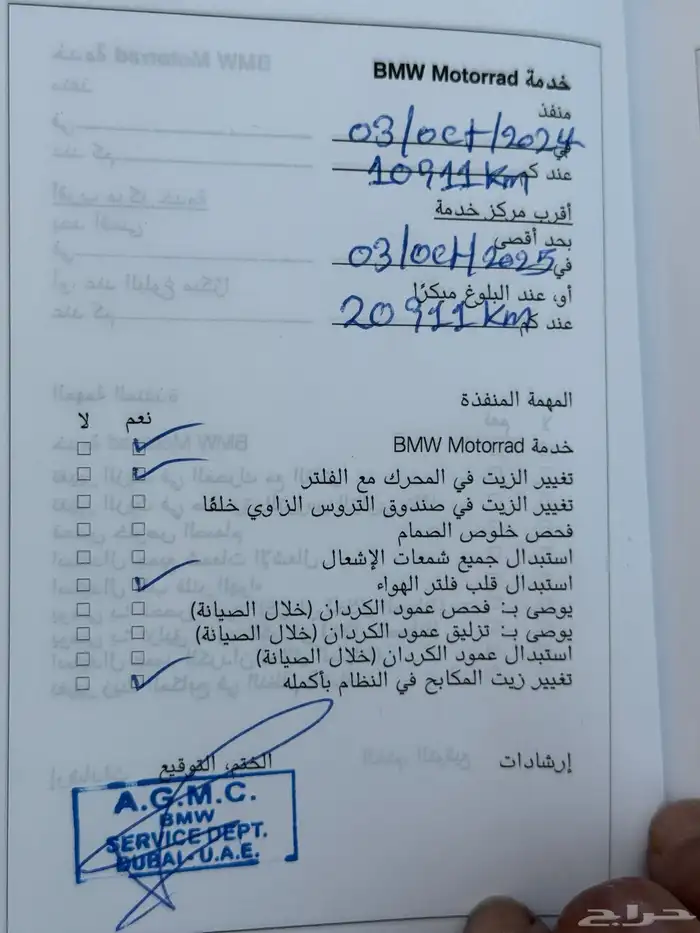 خدمة BMW Motorrad
منفذ
في 03/oct/2024
عند كم 10911 Km
أقرب مركز خدمة
بحد أقصى
في 03/oct/2025
أو، عند البلوغ مبكرًا
عند كم 20911 Km
المهمة المنفذة
نعم لا
خدمة BMW Motorrad
تغيير الزيت في المحرك مع الفلتر
تغيير الزيت في صندوق التروس الزاوي خلفًا
فحص خلوص الصمام
استبدال جميع شمعات الإشعال
استبدال قلب فلتر الهواء
يوصى بـ: فحص عمود الكردان (خلال الصيانة)
يوصى بـ: تزليق عمود الكردان (خلال الصيانة)
استبدال عمود الكردان (خلال الصيانة)
تغيير زيت المكابح في النظام بأكمله
إرشادات الختم، التوقيع
A.G.M.C.
BMW
SERVICE DEPT.
DUBAI - U.A.E.
حراج